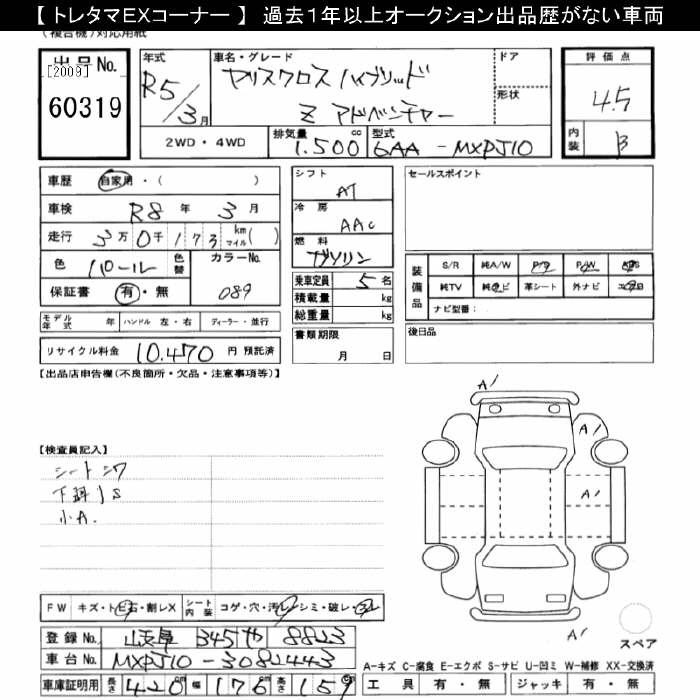 【 トレタマEXコーナー 】 過去1年以上オークション出品歴がない車両
(複合機)対応用紙
出品No.
[2009]
60319
年式
R5/3月
車名・グレード
ヤリスクロス ハイブリッド
Z アドベンチャー
ドア
形状
評価点
4.5
内装
B
2WD・4WD
排気量
1.500 cc
型式
6AA - MXPJ10
車歴
自家用・( )
車検
R8 年 3 月
走行
3万0千173 km マイル( )
色
パール
色替
カラーNo.
089
保証書
有・無
シフト
AT
冷房
AAC
燃料
ガソリン
乗車定員 5 名
積載量 kg
総重量 kg
書類期限
月 日
セールスポイント
装備品
S/R 純A/W P/S P/W ABS
純TV 純ナビ 革シート 外ナビ エアB
ナビ型番:
後日品
モデル年式 年 ハンドル 左・右 ディーラー・並行
リサイクル料金 10.470 円 預託済
【出品店申告欄(不良箇所・欠品・注意事項等)】
A1
A1
A1
A1
【検査員記入】
シートシワ
下廻りS
小A.
FW キズ・トビ石・割レX シート内装 コゲ・穴・汚レ・シミ・破レ・スレ
登録No. 岐阜 345 や 8823
車台No. MXPJ10-3082443
車庫証明用 長さ 420 cm 幅 176 cm 高さ 159
スペア
A-キズ C-腐食 E-エクボ S-サビ U-凹ミ W-補修 XX-交換済
工具 有・無 ジャッキ 有・無